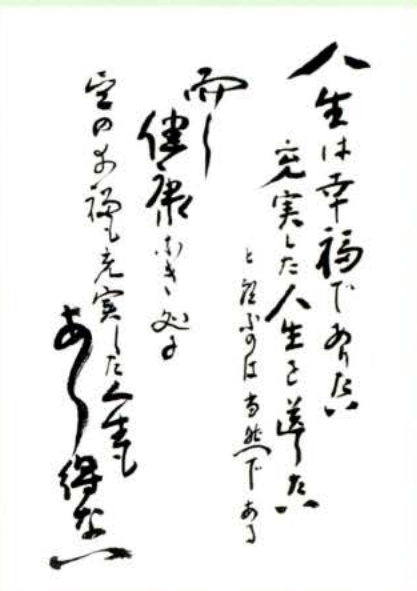 人生は幸福でありたい
充実した人生を送りたい
と望ぶのは当然である
而し
健康なき処に
真の幸福も充実した人生も
あり得ない